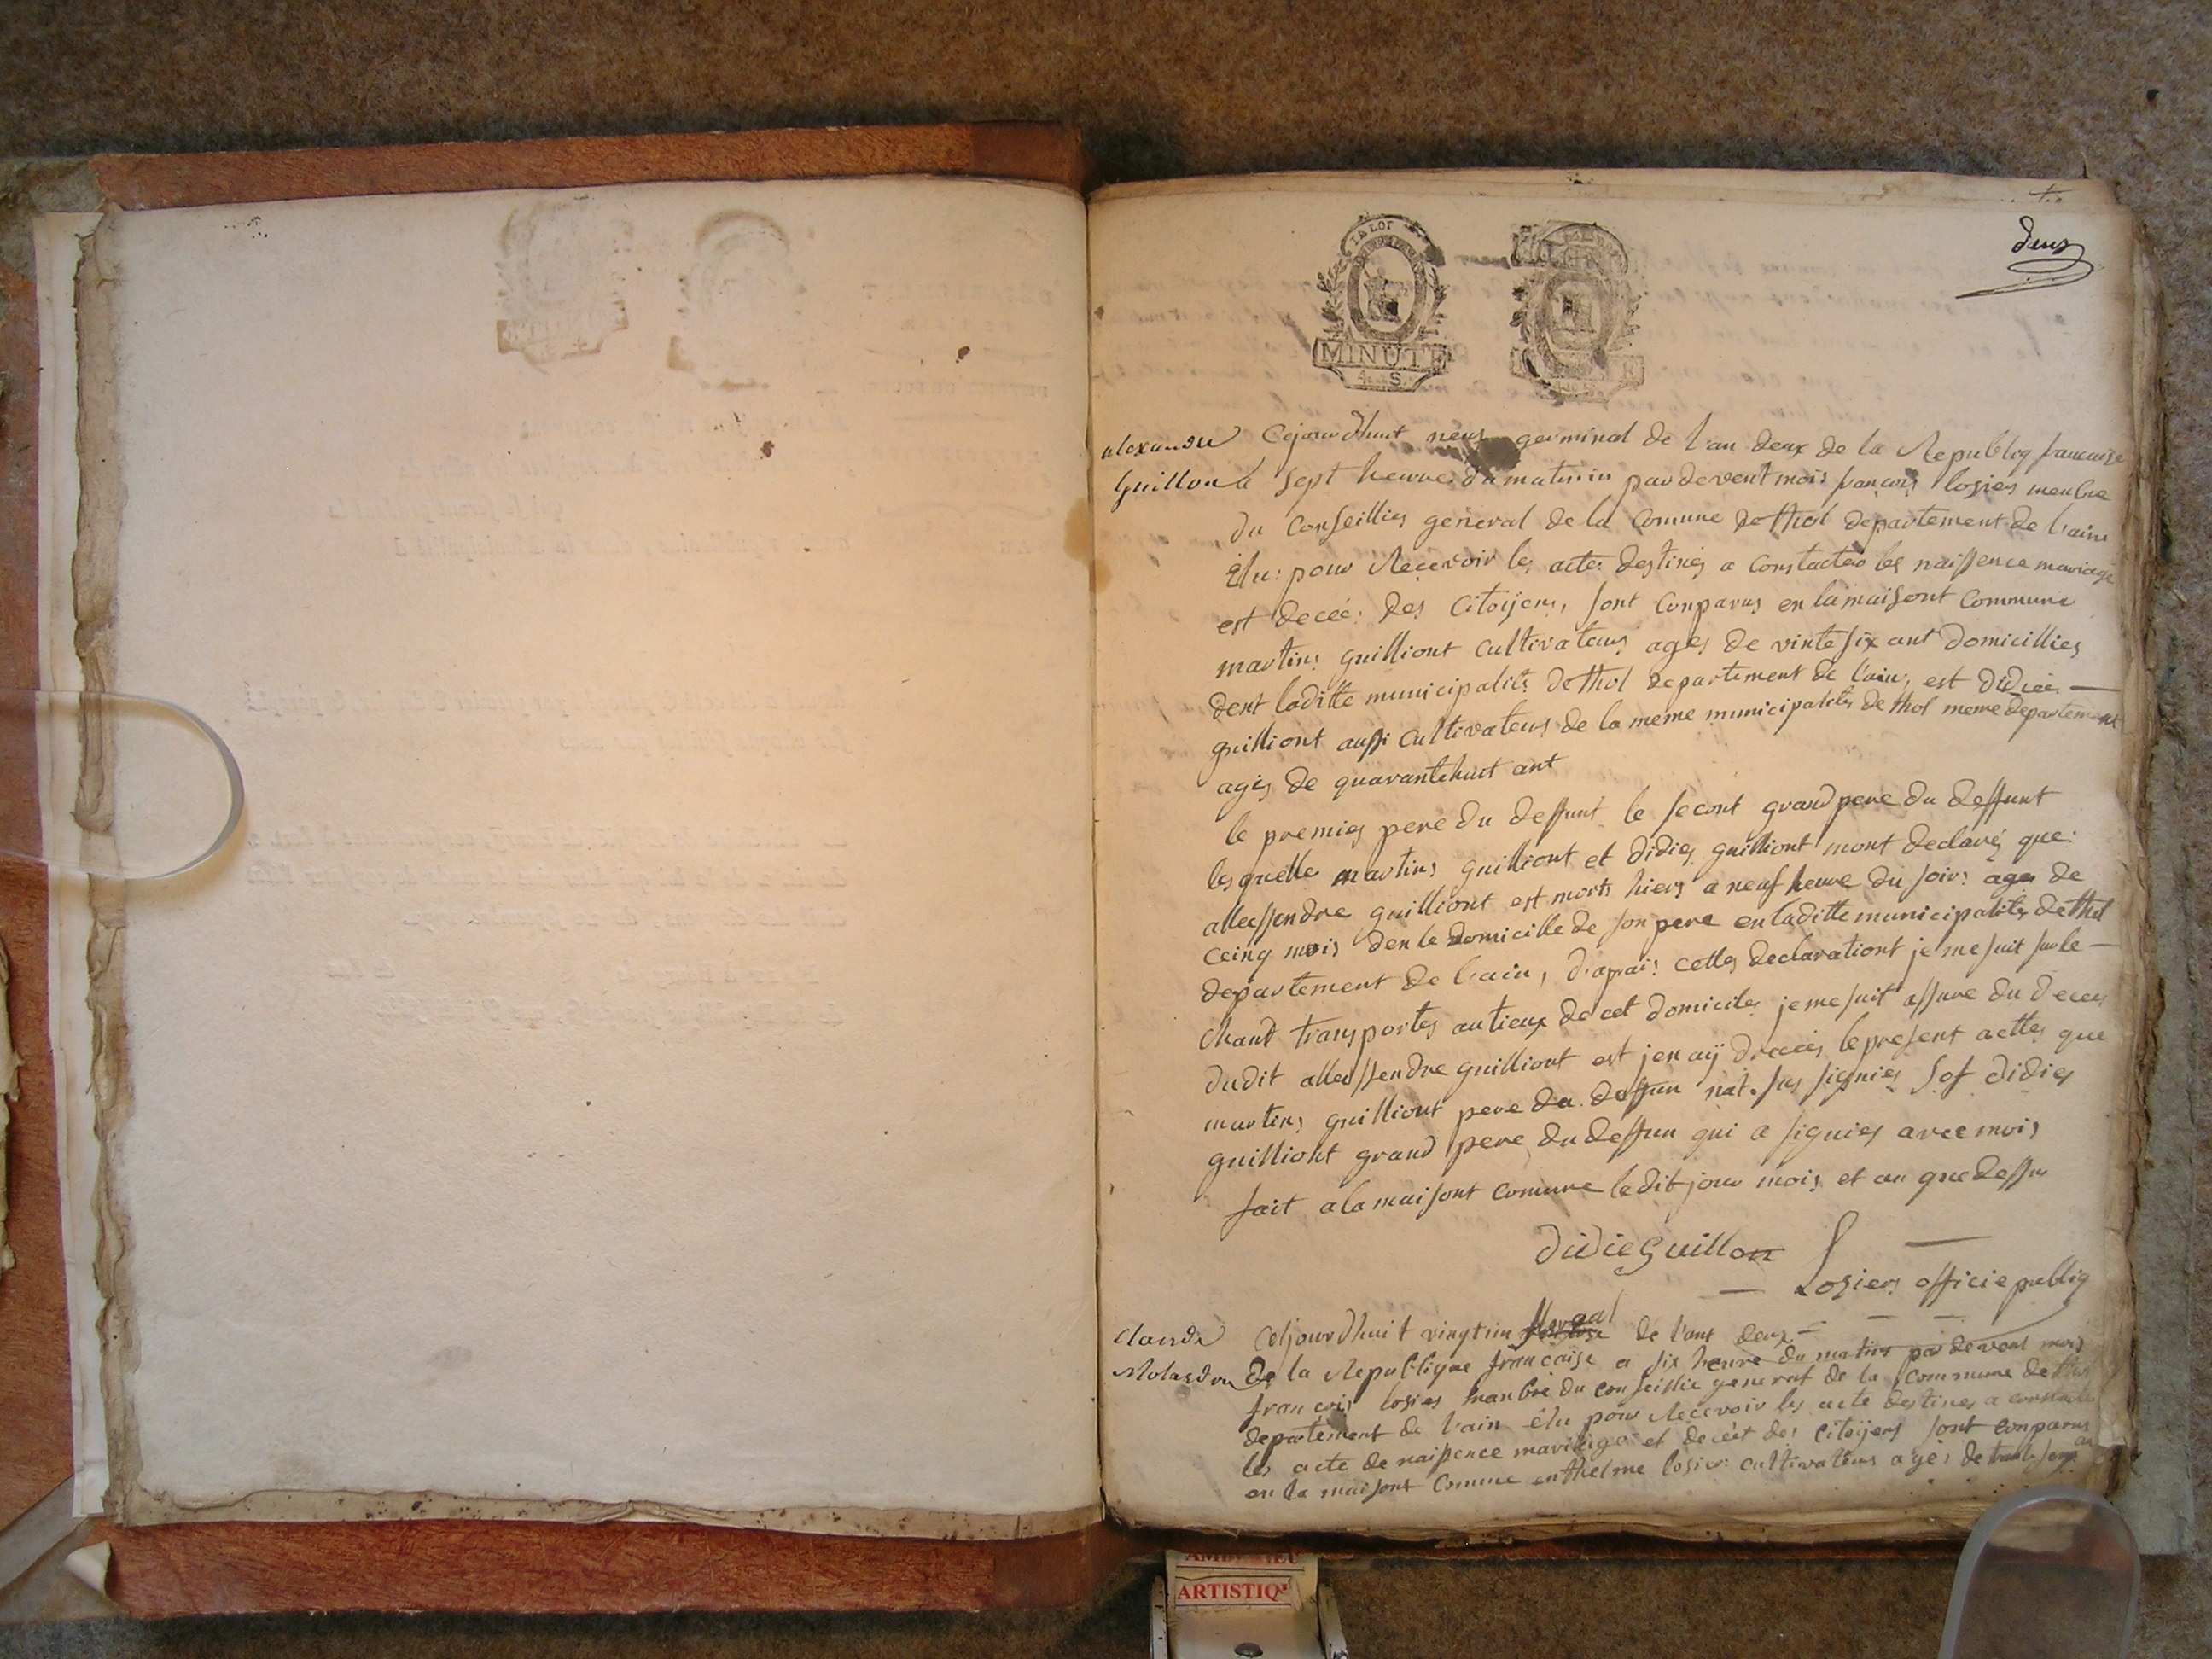 deux
LA LOI
MINUTE
4. S.
alexandre
Guillon
Cejourdhuit neuf germinal de l'an deux de la Republiq francaise
a sept heure du matinin par devent mois françois losier menbre
du Conseillier general de la Comune de thol departement de l'ain
Elu: pour Recevoir les actes destines a constacter les naissence mariage
est deceé: des Citoijens, sont Conparus en la maisont Commune
martins guilliont cultivateur agés de vinte six ant domicillies
dent laditte municipalités de thol departement de l'ain, est didiés —
guilliont aussi cultivateurs de la meme municipalités de thol meme departement
agés de quarantehuit ant
le premies pere du deffunt le secont grand pere du deffunt
lesquelle martins guilliont et didies guilliont mont declarés que:
allessendre guilliont est morts hiers a neuf heure du soirs ages de
ceinq mois den le domicille de son pere en laditte municipalités de thol
departement de l'ain, d'aprais cettes declarationt je me suit sur le —
chant transportes au lieux de cet domiciles je me suit assure du deces
dudit allessendre guilliont est jen aÿ dreceés le present acttes que
martins guilliont pere du deffun nat. sus signies sof didies
guilliont grand pere du deffun qui a signies avec mois
fait a la maisont comune ledit jour mois et an que dessu
didie Guillon
Losiers officie publiq
Claude
Molardou
Cejourdhuit vingt un floreal de l'ant deux —
de la Republique française a six heure du matin par devent mois
françois losies manbre du conseillie general de la commune de thol
departement de l'ain élu pour Recevoir les acte destines a constacte
les acte de naissence mariage et decéet des citoijens sont conparus
en la maisont Comune enthelme losier cultivateurs agés de
AMBERIEU
ARTISTIQUE